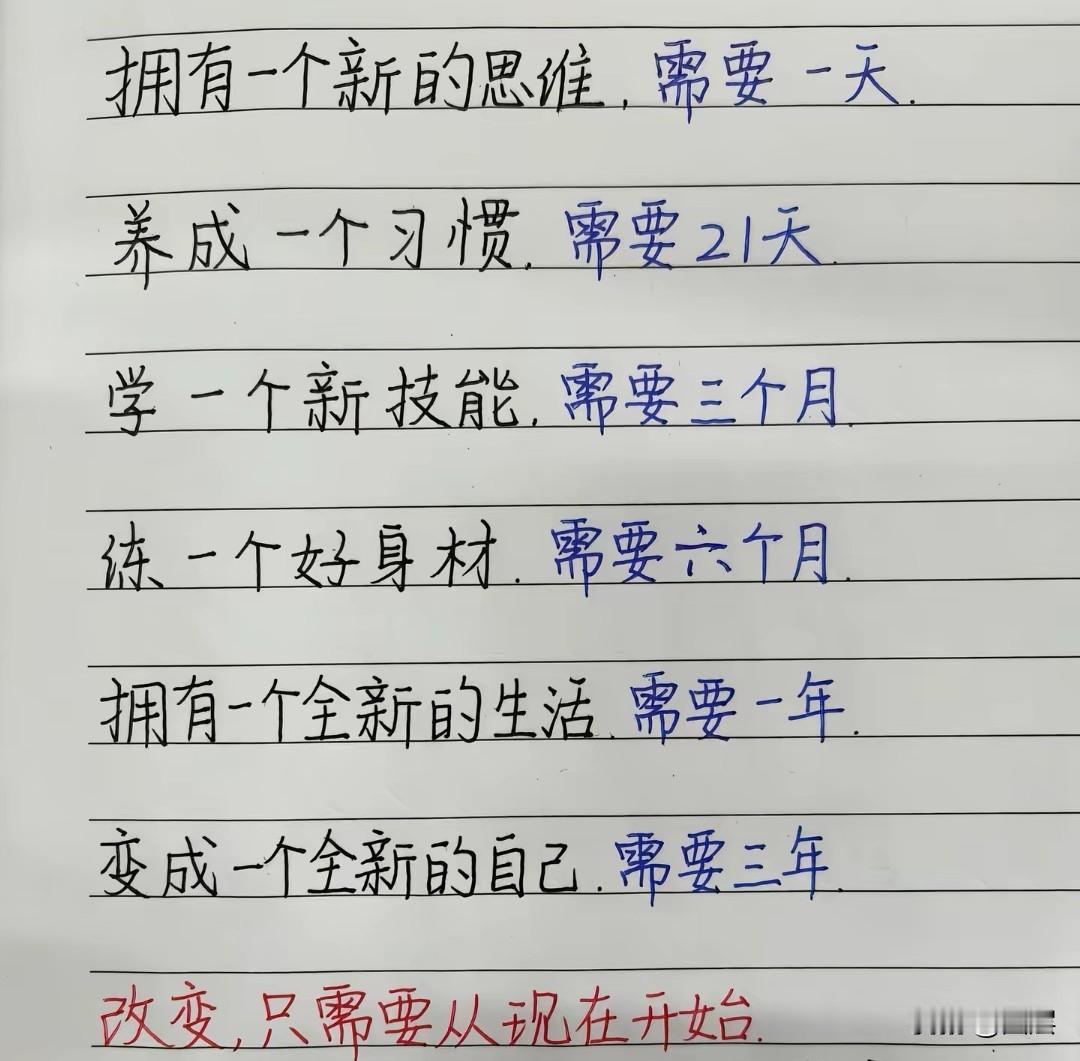 拥有一个新的思维,需要一天.
养成一个习惯.需要21天.
学一个新技能.需要三个月.
练一个好身材.需要六个月.
拥有一个全新的生活.需要一年.
变成一个全新的自己.需要三年.
改变,只需要从现在开始.